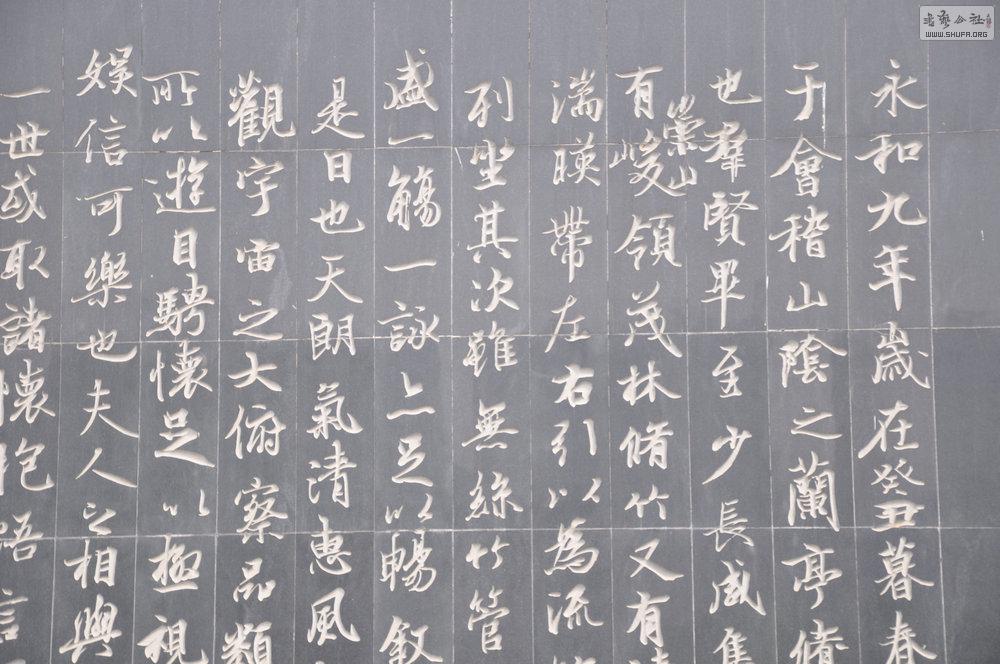 永和九年歲在癸丑暮春
于會稽山陰之蘭亭脩
也羣賢畢至少長咸集
有崇山峻領茂林脩竹又有清
湍暎帶左右引以為流
列坐其次雖無絲竹管
盛一觴一詠亦足以暢叙
是日也天朗氣清惠風
觀宇宙之大俯察品類
所以遊目騁懷足以極視
娛信可樂也夫人之相與
一世或取諸懷抱悟言
書藝公社
WWW.SHUFA.ORG